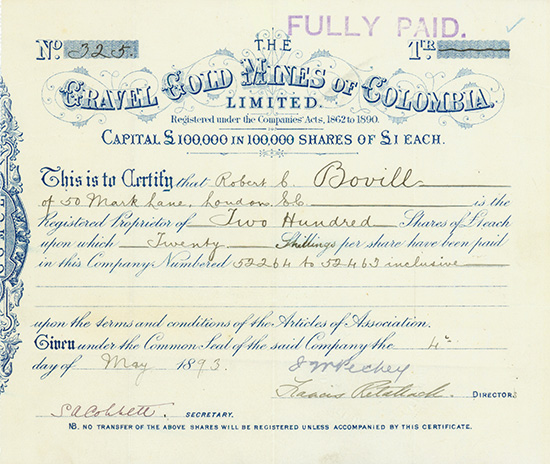 FULLY PAID.
No. 325. THE Tr
GRAVEL GOLD MINES OF COLOMBIA.
LIMITED.
Registered under the Companies' Acts, 1862 to 1890.
CAPITAL £100,000 IN 100,000 SHARES OF £1 EACH.
This is to Certify that Robert C. Bovill
of 50 Mark Lane, London E.C. is the
Registered Proprietor of Two Hundred Shares of £1 each
upon which Twenty Shillings per share have been paid
in this Company Numbered 52264 to 52463 inclusive
upon the terms and conditions of the Articles of Association.
Given under the Common Seal of the said Company the 4th
day of May 1893.
Francis
DIRECTORS
SECRETARY.
NB. NO TRANSFER OF THE ABOVE SHARES WILL BE REGISTERED UNLESS ACCOMPANIED BY THIS CERTIFICATE.